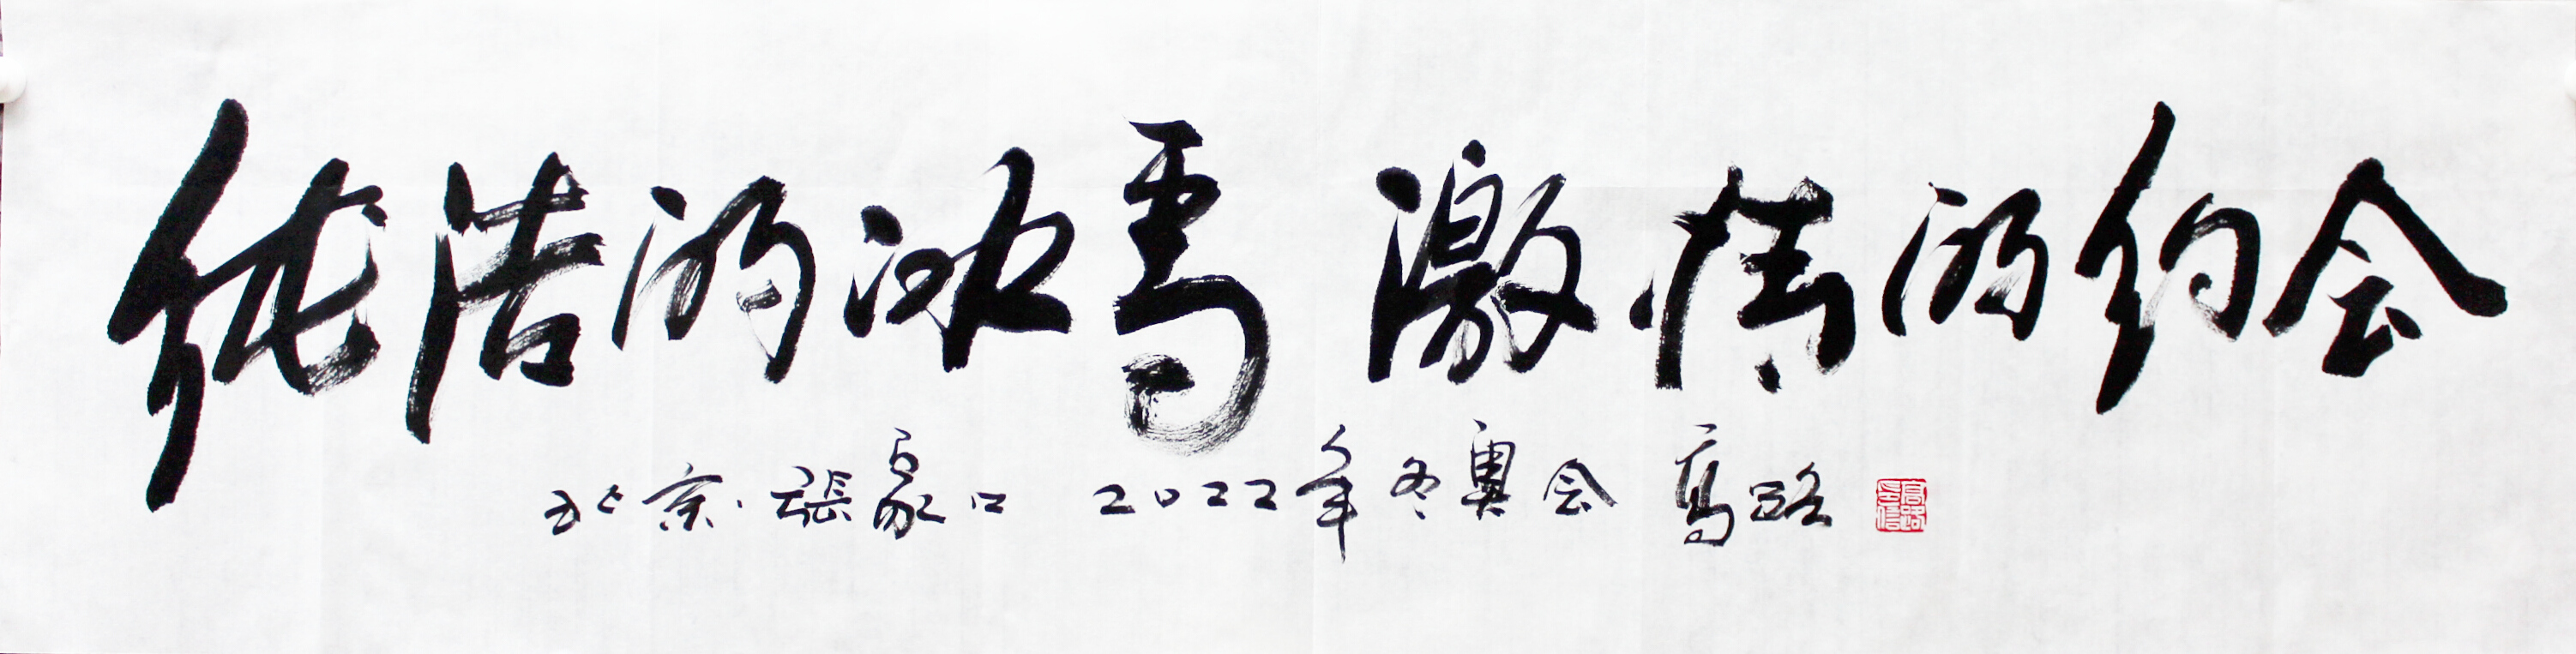 纯洁的冰雪 激情的约会
北京·張家口 2022年冬奥会 高路
高路印信